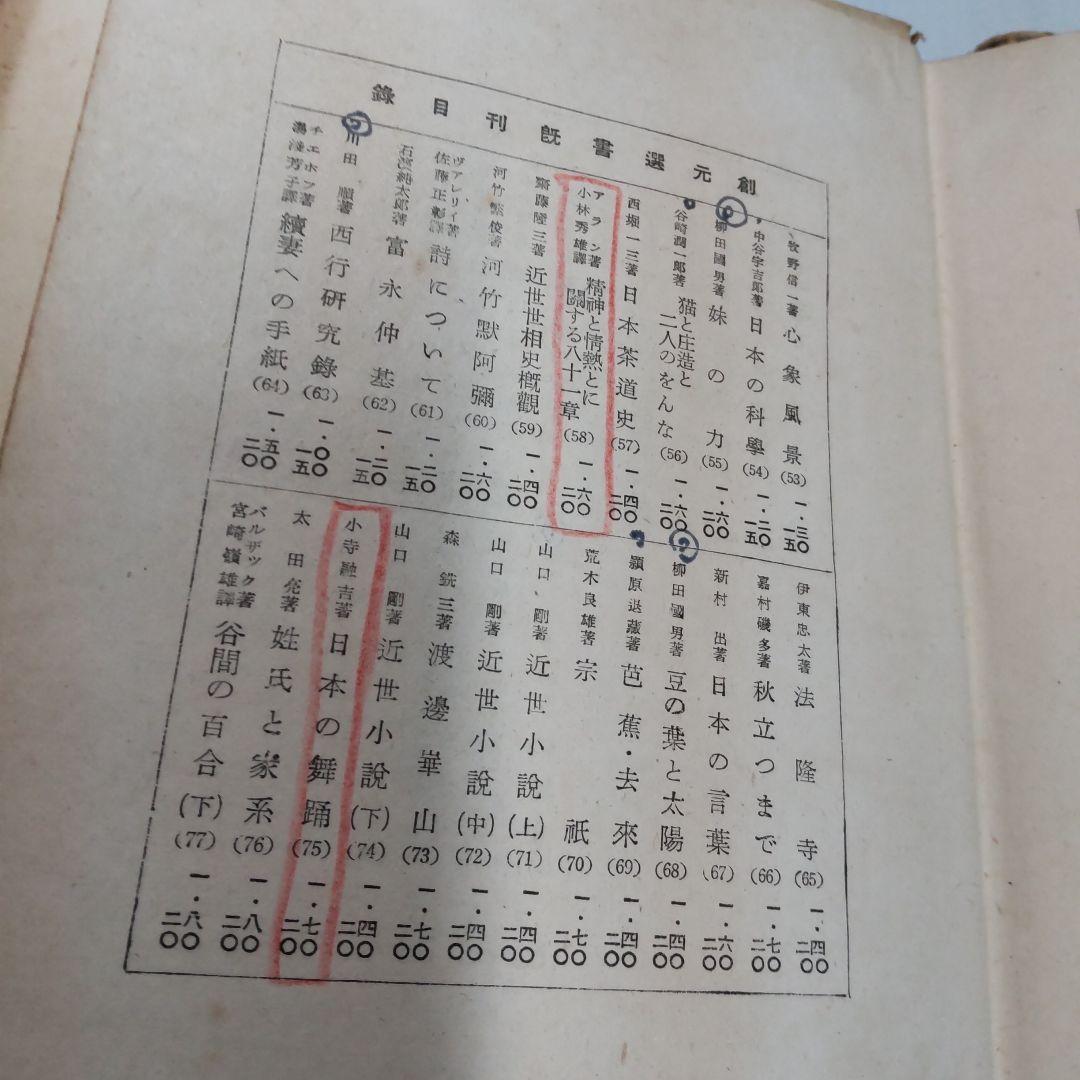 創元選書既刊目錄
牧野信一著 心象風景 (53) 一・三五 一五
中谷宇吉郎著 日本の科學 (54) 一・二〇 一五
柳田國男著 妹の力 (55) 一・六〇 二〇
谷崎潤一郎著 猫と庄造と二人のをんな (56) 一・六〇 二〇
西堀一三著 日本茶道史 (57) 一・四〇 二〇
アラン著 小林秀雄譯 精神と情熱とに關する八十一章 (58) 一・六〇 二〇
齋藤隆三著 近世世相史槪觀 (59) 一・四〇 二〇
河竹繁俊著 河竹默阿彌 (60) 一・六〇 二〇
ヴァレリイ著 佐藤正彰譯 詩について (61) 一・二〇 一五
石濱純太郎著 富永仲基 (62) 一・二〇 一五
川田順著 西行硏究錄 (63) 一・〇〇 一五
チエホフ著 湯淺芳子譯 續妻への手紙 (64) 一・五〇 二〇
伊東忠太著 法隆寺 (65) 一・四〇 二〇
嘉村礒多著 秋立つまで (66) 一・七〇 二〇
新村出著 日本の言葉 (67) 一・六〇 二〇
柳田國男著 豆の葉と太陽 (68) 一・四〇 二〇
潁原退藏著 芭蕉・去來 (69) 一・四〇 二〇
荒木良雄著 宗祇 (70) 一・七〇 二〇
山口剛著 近世小說(上) (71) 一・四〇 二〇
山口剛著 近世小說(中) (72) 一・四〇 二〇
森銑三著 渡邊崋山 (73) 一・七〇 二〇
山口剛著 近世小說(下) (74) 一・四〇 二〇
小寺融吉著 日本の舞踊 (75) 一・七〇 二〇
太田亮著 姓氏と家系 (76) 一・八〇 二〇
バルザック著 宮崎嶺雄譯 谷間の百合(下) (77) 一・八〇 二〇